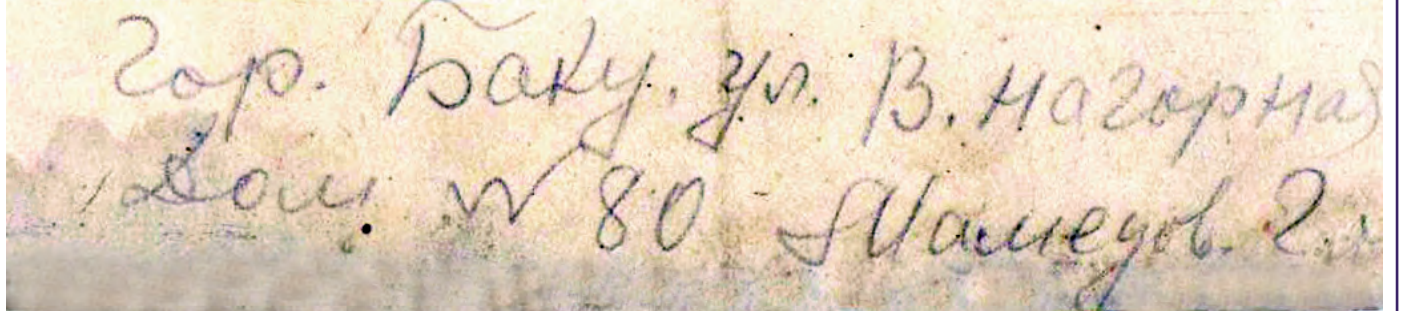 Гор. Баку. ул. В. Нагорная
Дом № 80 Мамедов. Г.